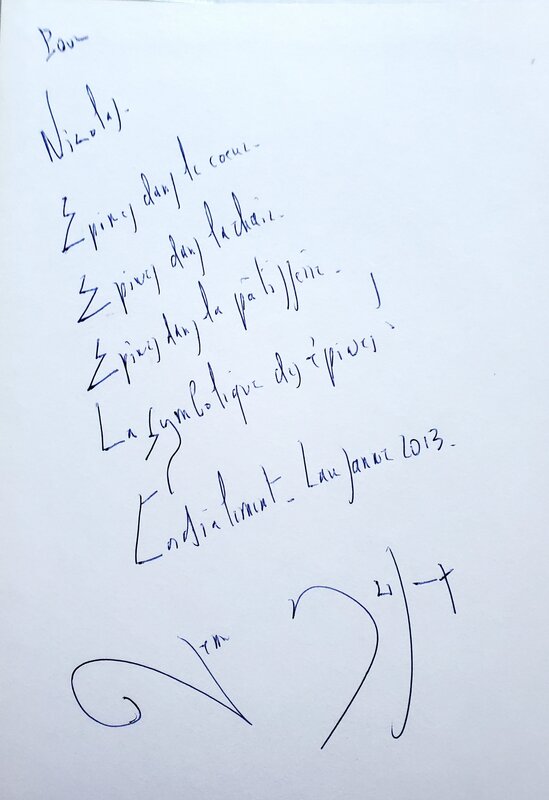 Pour
Nicolas.
Epines dans le coeur.
Epines dans la chair.
Epines dans la pâtisserie.
La symbolique des épines
Cordialement_ Lausanne 2013.